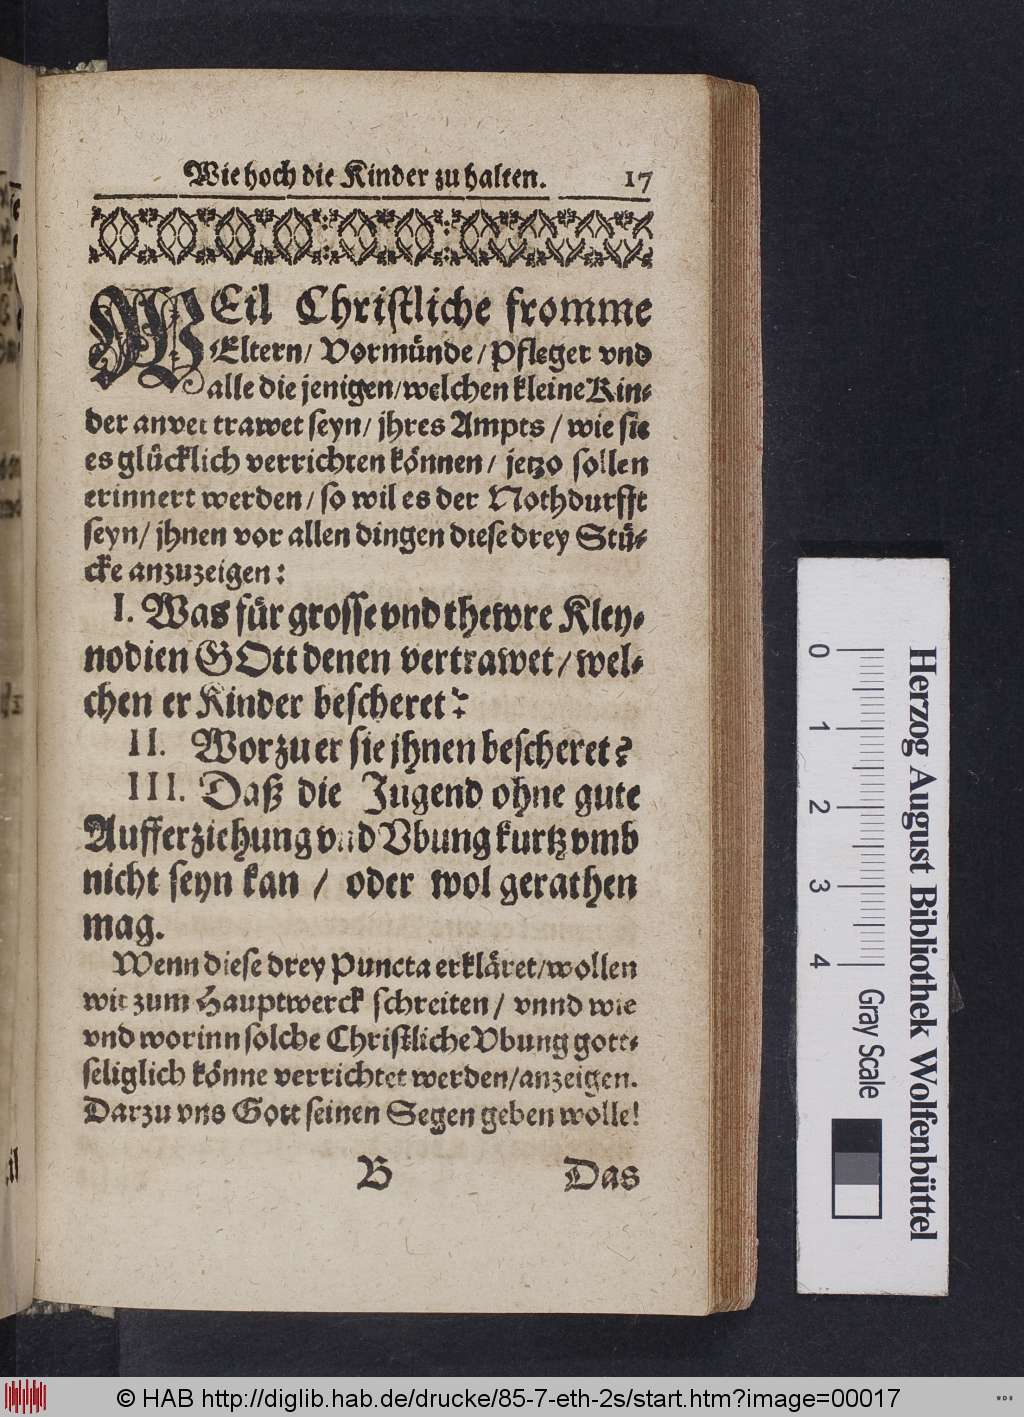 Wie hoch die Kinder zu halten. 17
WEil Christliche fromme
Eltern/ Vormünde/ Pfleger vnd
alle die jenigen/ welchen kleine Kin-
der anvertrawet seyn/ jhres Ampts/ wie sie
es glücklich verrichten können/ jetzo sollen
erinnert werden/ so wil es der Nothdurfft
seyn/ jhnen vor allen dingen diese drey Stü-
cke anzuzeigen:
I. Was für grosse vnd thewre Kley-
nodien GOtt denen vertrawet/ wel-
chen er Kinder bescheret?
II. Worzu er sie jhnen bescheret?
III. Daß die Jugend ohne gute
Aufferziehung vnd Vbung kurtz vmb
nicht seyn kan / oder wol gerathen
mag.
Wenn diese drey Puncta erkläret/ wollen
wir zum Hauptwerck schreiten/ vnnd wie
vnd worinn solche Christliche Vbung gott-
seliglich könne verrichtet werden/ anzeigen.
Darzu vns Gott seinen Segen geben wolle!
B Das
0 1 2 3 4
Gray Scale
Herzog August Bibliothek Wolfenbüttel
© HAB http://diglib.hab.de/drucke/85-7-eth-2s/start.htm?image=00017